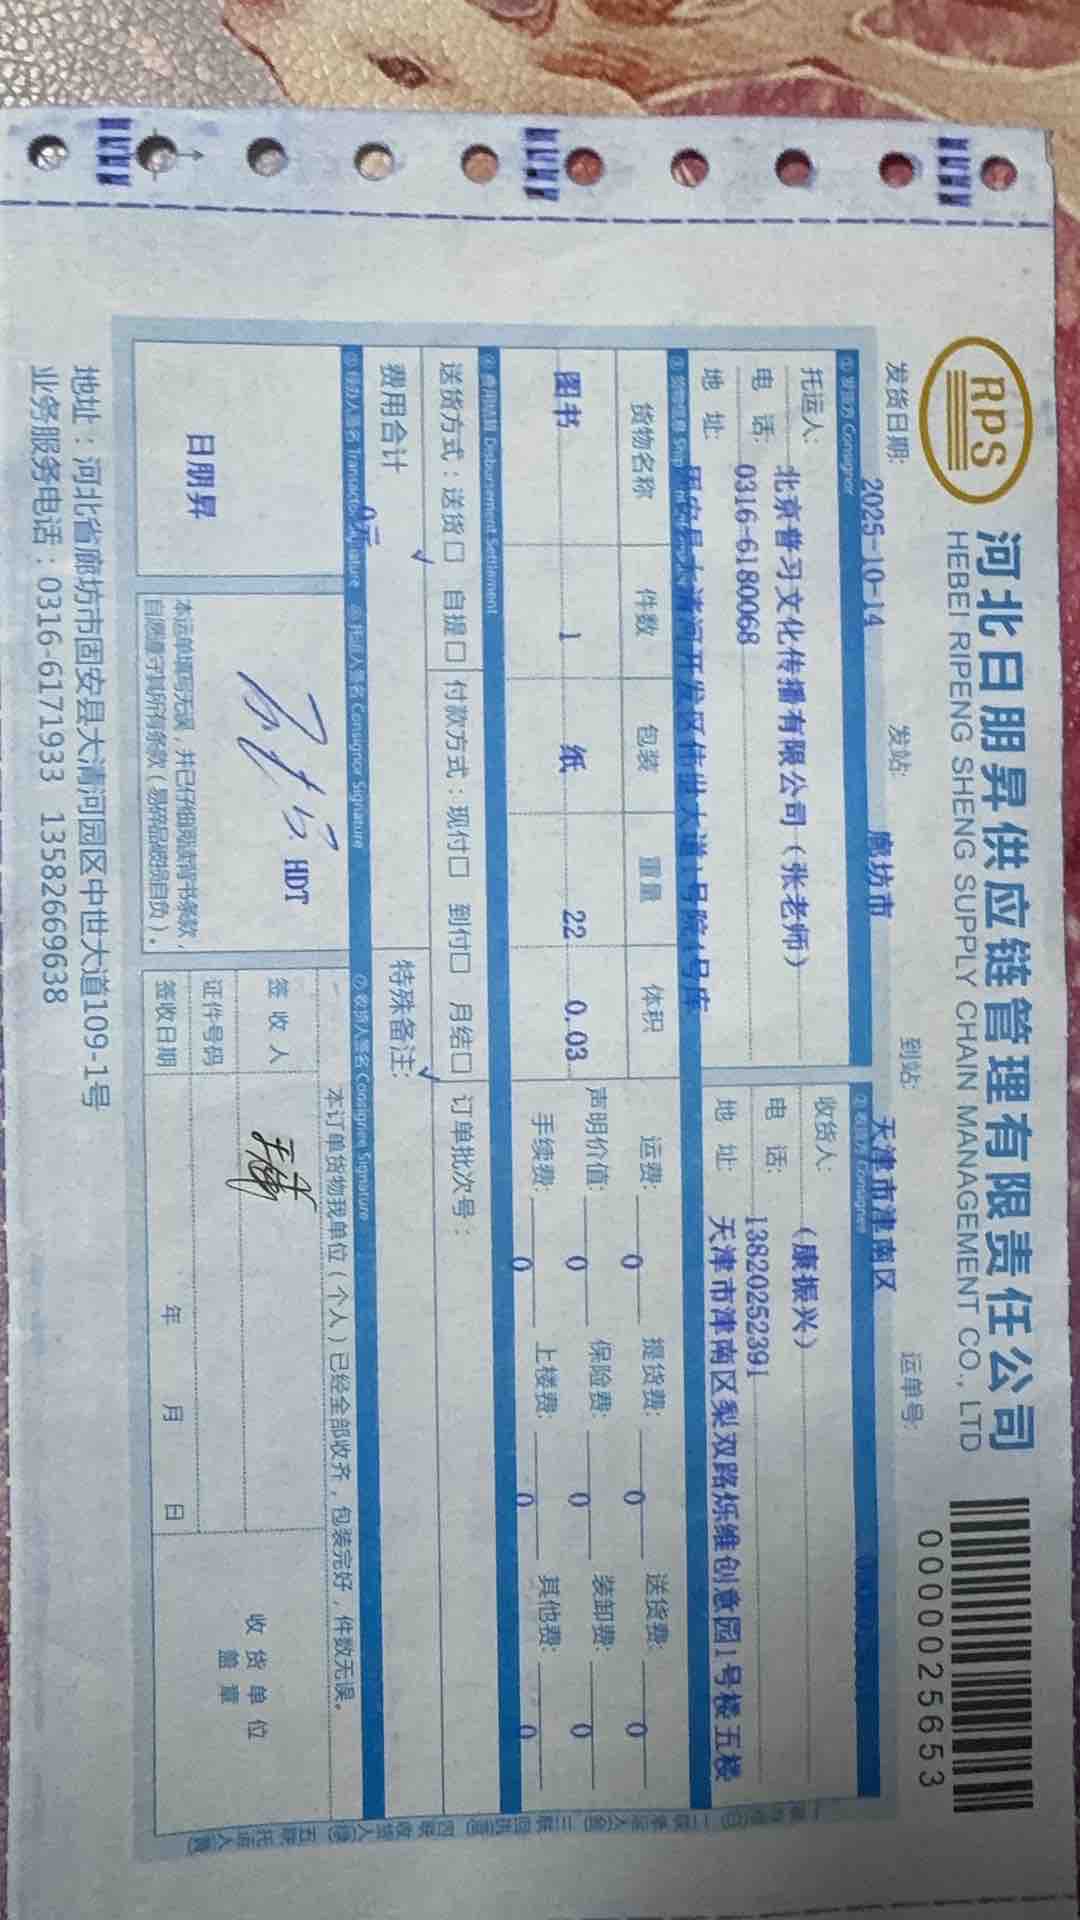 RPS
河北日朋昇供应链管理有限责任公司
HEBEI RIPENG SHENG SUPPLY CHAIN MANAGEMENT CO., LTD
0000025653
发货日期: 2025-10-14 发站: 廊坊市 到站: 天津市津南区 运单号:
① 发货方 Consignor
② 收货方 Consignee
托运人: 北京普习文化传播有限公司(张老师)
收货人: (康振兴)
电 话: 0316-6180068
电 话: 13820252391
地 址: 固安县大清河开发区伟世大道1号院4号库
地 址: 天津市津南区梨双路烁维创意园1号楼五楼
货物名称 件数 包装 重量 体积
图书 1 纸 22 0.03
运费: 0 提货费: 0 送货费: 0
声明价值: 0 保险费: 0 装卸费: 0
手续费: 0 上楼费: 0 其他费: 0
④ 费用结算 Disbursement Settlement
送货方式:送货口 ✓ 自提口 付款方式:现付口 到付口 月结口 ✓ 订单批次号:
费用合计 0元 特殊备注:
⑥ 托运人签名 Consignor Signature
⑦ 收货人签名 Consignee Signature
日朋昇
HDT
本运单填写无误,并已仔细阅读背书条款,
自愿遵守其所有条款(易碎品破损自负)。
本订单货物我单位(个人)已经全部收齐,包装完好,件数无误。
签 收 人
证件号码
签收日期 年 月 日
收货单位
盖 章
地址:河北省廊坊市固安县大清河园区中世大道109-1号
业务服务电话:0316-6171933 13582669638